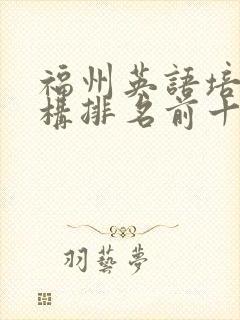 福州英語培
構排名前十
羽藝夢